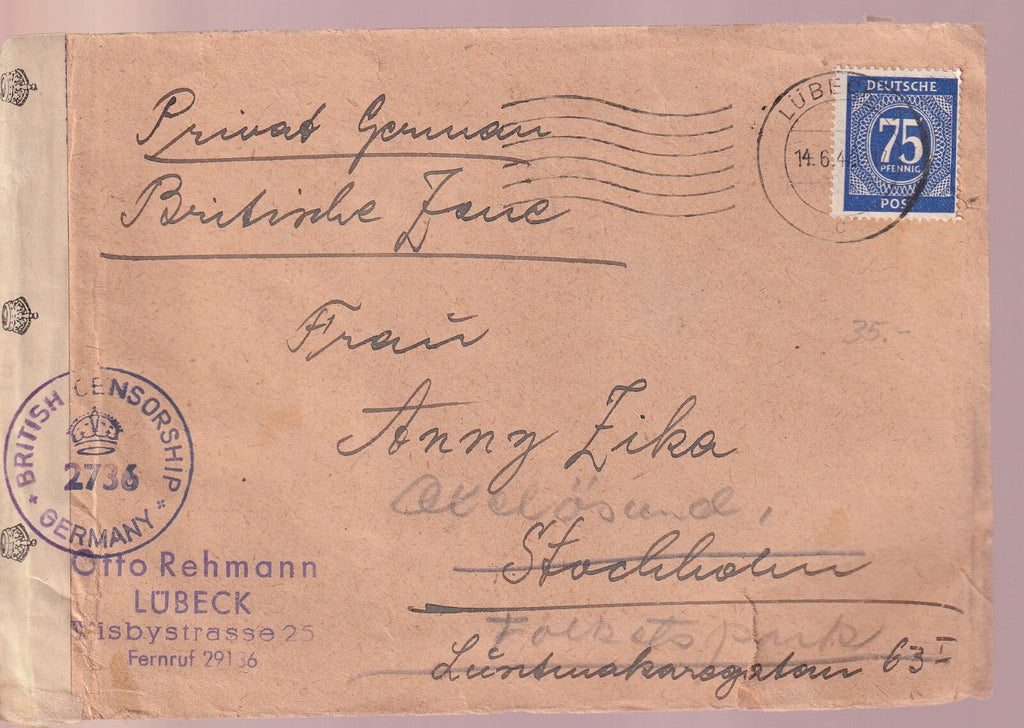 Privat German
Britische Zone
LÜBECK
14.6.4
c
DEUTSCHE
75
PFENNIG
POST
Frau
35.-
Anny Zika
Oxelösund,
Stockholm
Folkets park
Luntmakaregatan 63 I
BRITISH CENSORSHIP
2736
GERMANY
Otto Rehmann
LÜBECK
Wisbystrasse 25
Fernruf 29136